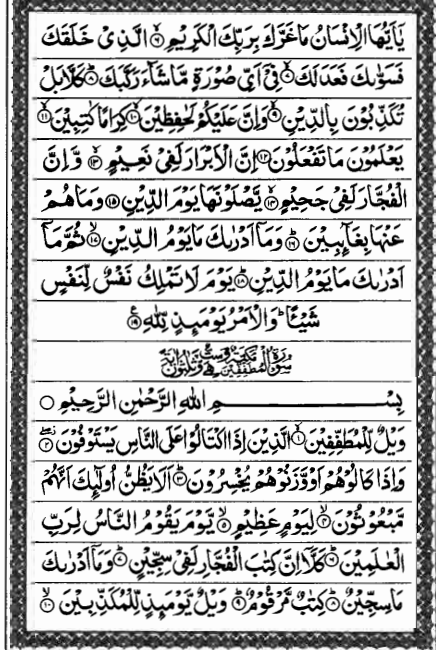 يَاَيُّهَا الْاِنْسَانُ مَا غَرَّكَ بِرَبِّكَ الْكَرِيْمِ ۙ۶ الَّذِىْ خَلَقَكَ
فَسَوّٰىكَ فَعَدَلَكَ ۙ۷ فِىْٓ اَىِّ صُوْرَةٍ مَّا شَآءَ رَكَّبَكَ ؕ۸ كَلَّا بَلْ
تُكَذِّبُوْنَ بِالدِّيْنِ ۙ۹ وَاِنَّ عَلَيْكُمْ لَحٰفِظِيْنَ ۙ۱۰ كِرَامًا كٰتِبِيْنَ ۙ۱۱
يَعْلَمُوْنَ مَا تَفْعَلُوْنَ ۱۲ اِنَّ الْاَبْرَارَ لَفِىْ نَعِيْمٍ ۚ۱۳ وَّاِنَّ
الْفُجَّارَ لَفِىْ جَحِيْمٍ ۚۖ۱۴ يَّصْلَوْنَهَا يَوْمَ الدِّيْنِ ۱۵ وَمَا هُمْ
عَنْهَا بِغَآىِٕبِيْنَ ؕ۱۶ وَمَآ اَدْرٰىكَ مَا يَوْمُ الدِّيْنِ ۙ۱۷ ثُمَّ مَآ
اَدْرٰىكَ مَا يَوْمُ الدِّيْنِ ؕ۱۸ يَوْمَ لَا تَمْلِكُ نَفْسٌ لِّنَفْسٍ
شَيْـًٔا ؕ وَالْاَمْرُ يَوْمَىِٕذٍ لِّلّٰهِ ۱۹
سُوْرَةُ الْمُطَفِّفِيْنَ مَكِّيَّةٌ وَّهِىَ سِتٌّ وَّثَلٰثُوْنَ اٰيَةً
بِسْمِ اللّٰهِ الرَّحْمٰنِ الرَّحِيْمِ
وَيْلٌ لِّلْمُطَفِّفِيْنَ ۙ۱ الَّذِيْنَ اِذَا اكْتَالُوْا عَلَى النَّاسِ يَسْتَوْفُوْنَ ۲
وَاِذَا كَالُوْهُمْ اَوْ وَّزَنُوْهُمْ يُخْسِرُوْنَ ؕ۳ اَلَا يَظُنُّ اُولٰٓىِٕكَ اَنَّهُمْ
مَّبْعُوْثُوْنَ ۙ۴ لِيَوْمٍ عَظِيْمٍ ۙ۵ يَّوْمَ يَقُوْمُ النَّاسُ لِرَبِّ
الْعٰلَمِيْنَ ؕ۶ كَلَّآ اِنَّ كِتٰبَ الْفُجَّارِ لَفِىْ سِجِّيْنٍ ؕ۷ وَمَآ اَدْرٰىكَ
مَا سِجِّيْنٌ ؕ۸ كِتٰبٌ مَّرْقُوْمٌ ؕ۹ وَيْلٌ يَّوْمَىِٕذٍ لِّلْمُكَذِّبِيْنَ ۙ۱۰